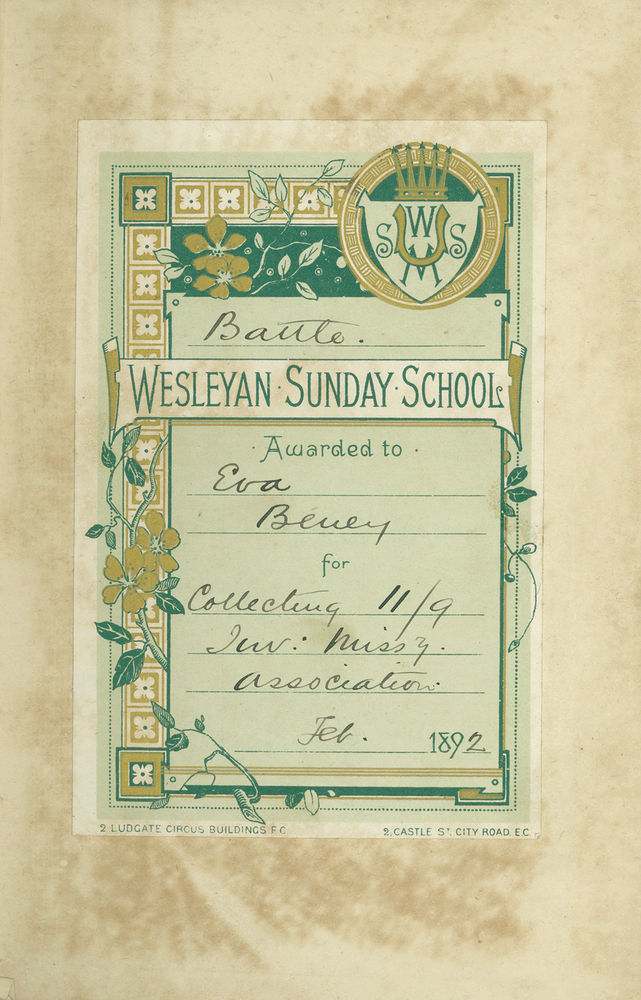 W
S U S
M
Battle.
WESLEYAN · SUNDAY · SCHOOL
· Awarded to ·
Eva
Beney
for
Collecting 11/9
Juv: Missy.
Association.
Feb. 1892
2 LUDGATE CIRCUS BUILDINGS E C 2, CASTLE ST. CITY ROAD. E.C.